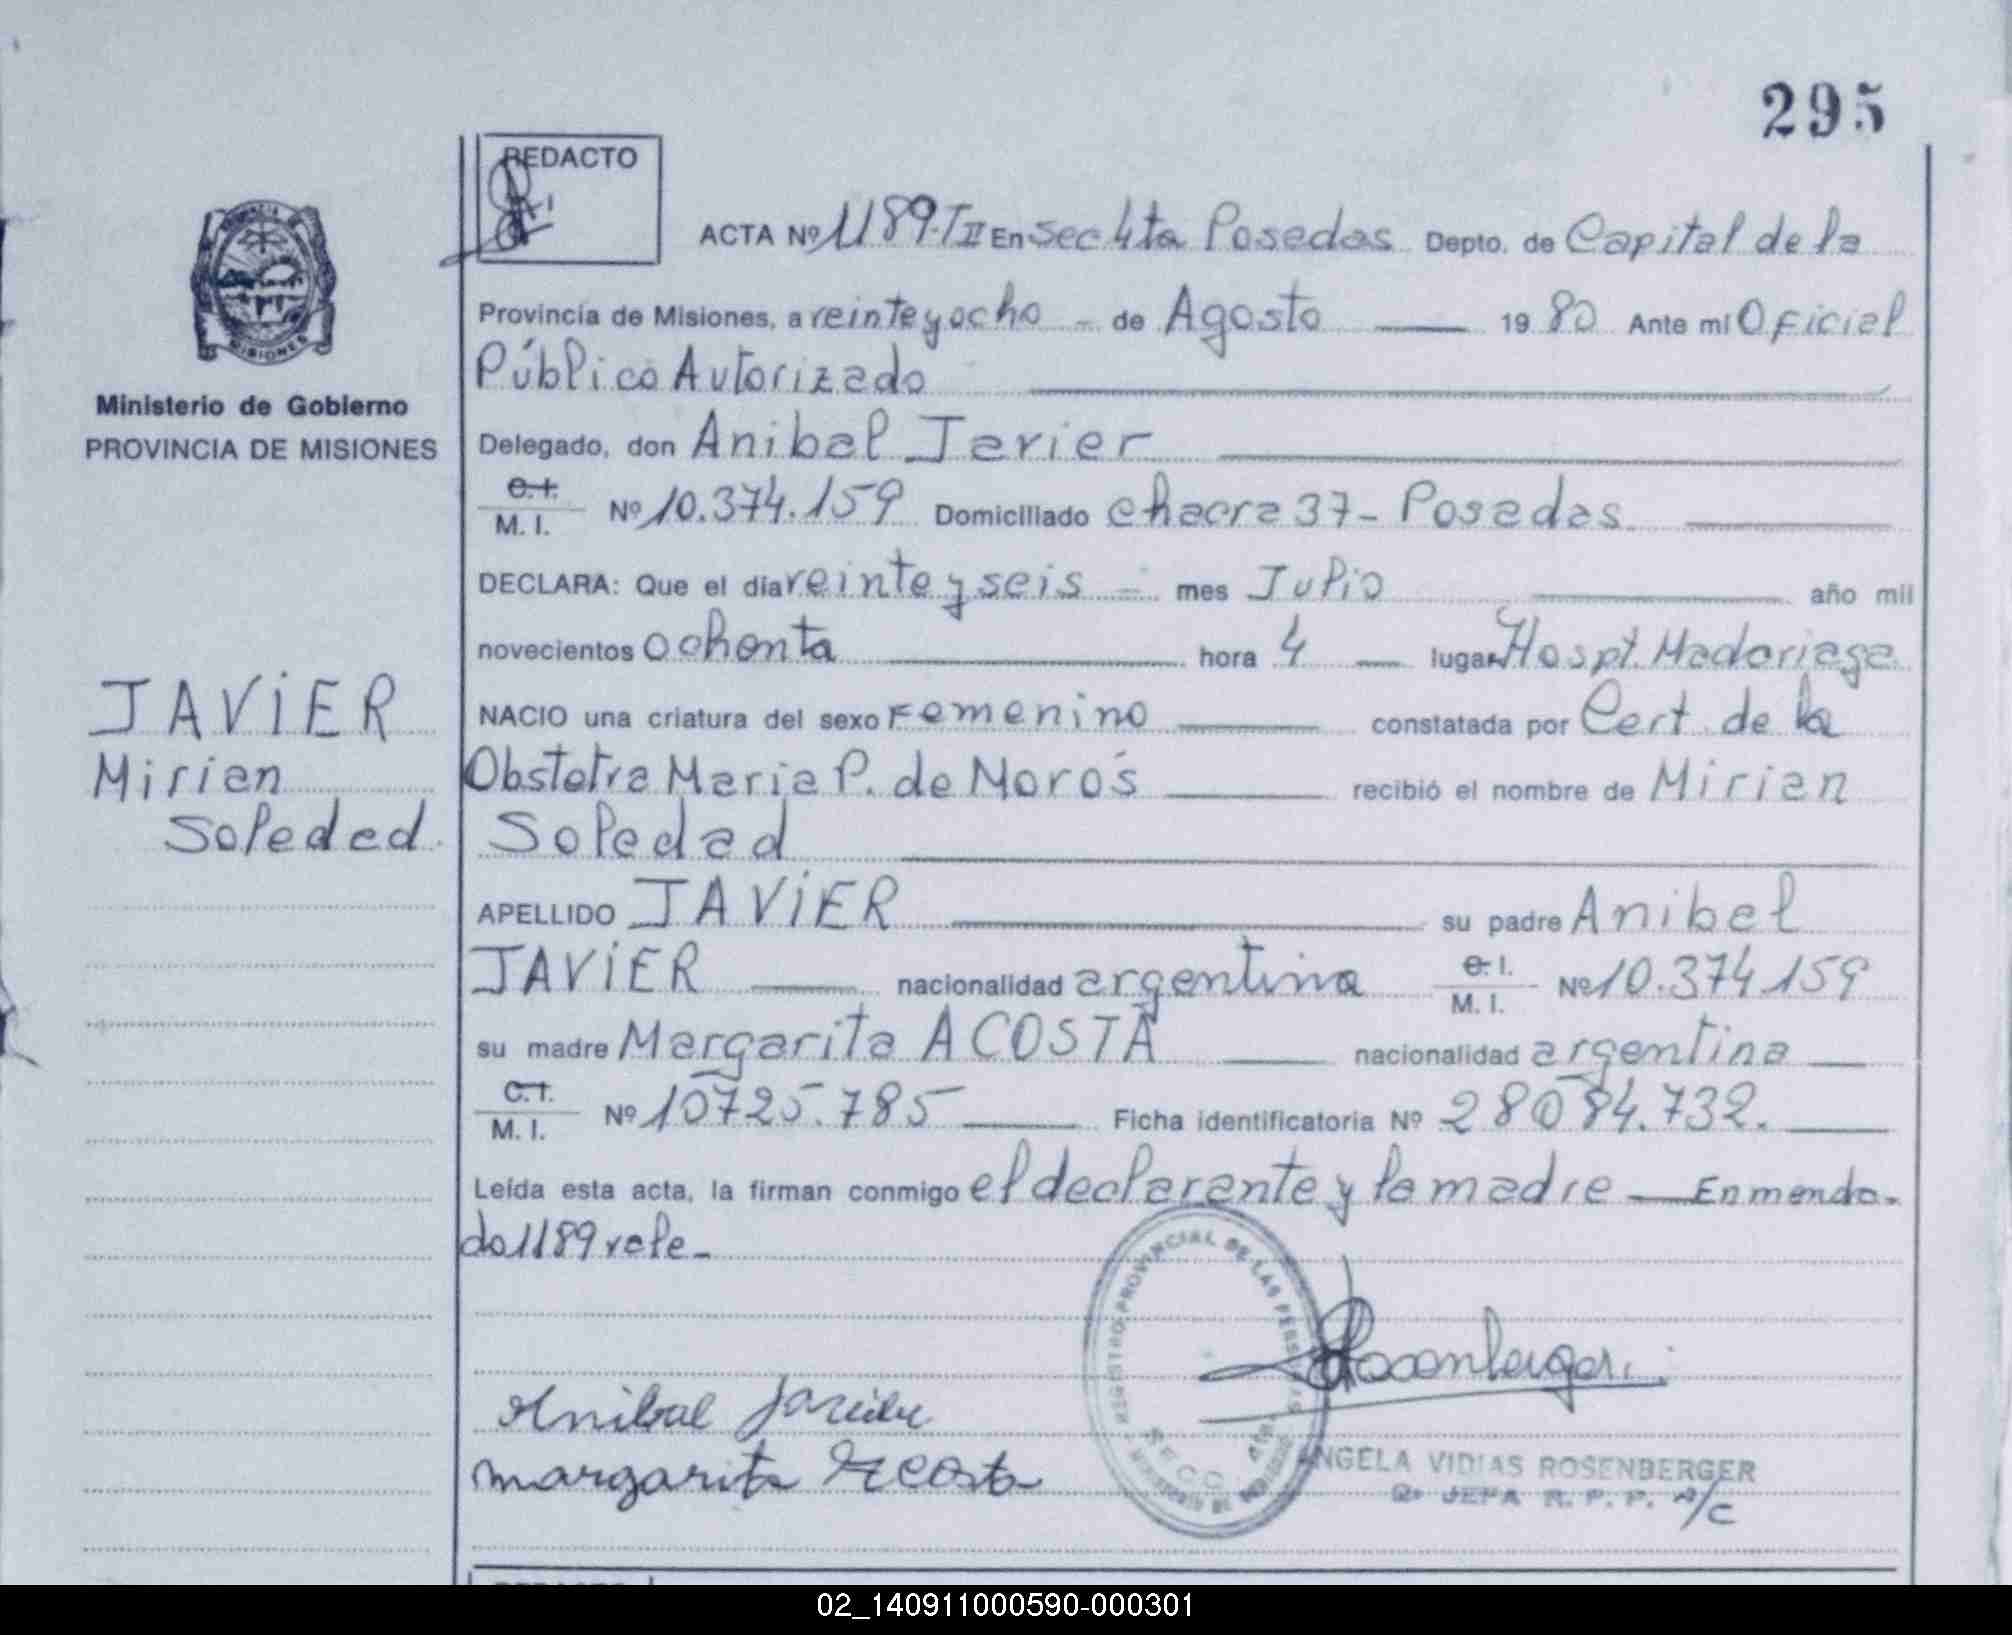 295
REDACTO
ACTA Nº 1189.TII En Sec 4ta Posedas Depto. de Capital de la
Provincia de Misiones, a veinteyocho - de Agosto 19 80 Ante mi Oficial
Público Autorizado
Ministerio de Gobierno
PROVINCIA DE MISIONES
Delegado, don Anibal Javier
C.I. / M. I. Nº 10.374.159 Domiciliado chacra 37 - Posadas
DECLARA: Que el día veinte y seis - mes Julio año mil
novecientos ochenta hora 4 lugar Hospt. Madariaga
JAVIER
Mirian
Soledad.
NACIO una criatura del sexo Femenino constatada por Cert. de la
Obstetra Maria P. de Moros recibió el nombre de Mirian
Soledad
APELLIDO JAVIER su padre Anibal
JAVIER nacionalidad argentina C.I. / M. I. Nº 10.374.159
su madre Margarita ACOSTA nacionalidad argentina
C.I. / M. I. Nº 10725.785 Ficha identificatoria Nº 28084.732.
Leída esta acta, la firman conmigo el declarante y la madre — Enmenda-
do 1189 vale -
REGISTRO PROVINCIAL DE LAS PERSONAS
Rosenberger
Anibal Javier
margarita Acosta
ANGELA VIDIAS ROSENBERGER
JEFA R. P. P. A/C
02_140911000590-000301